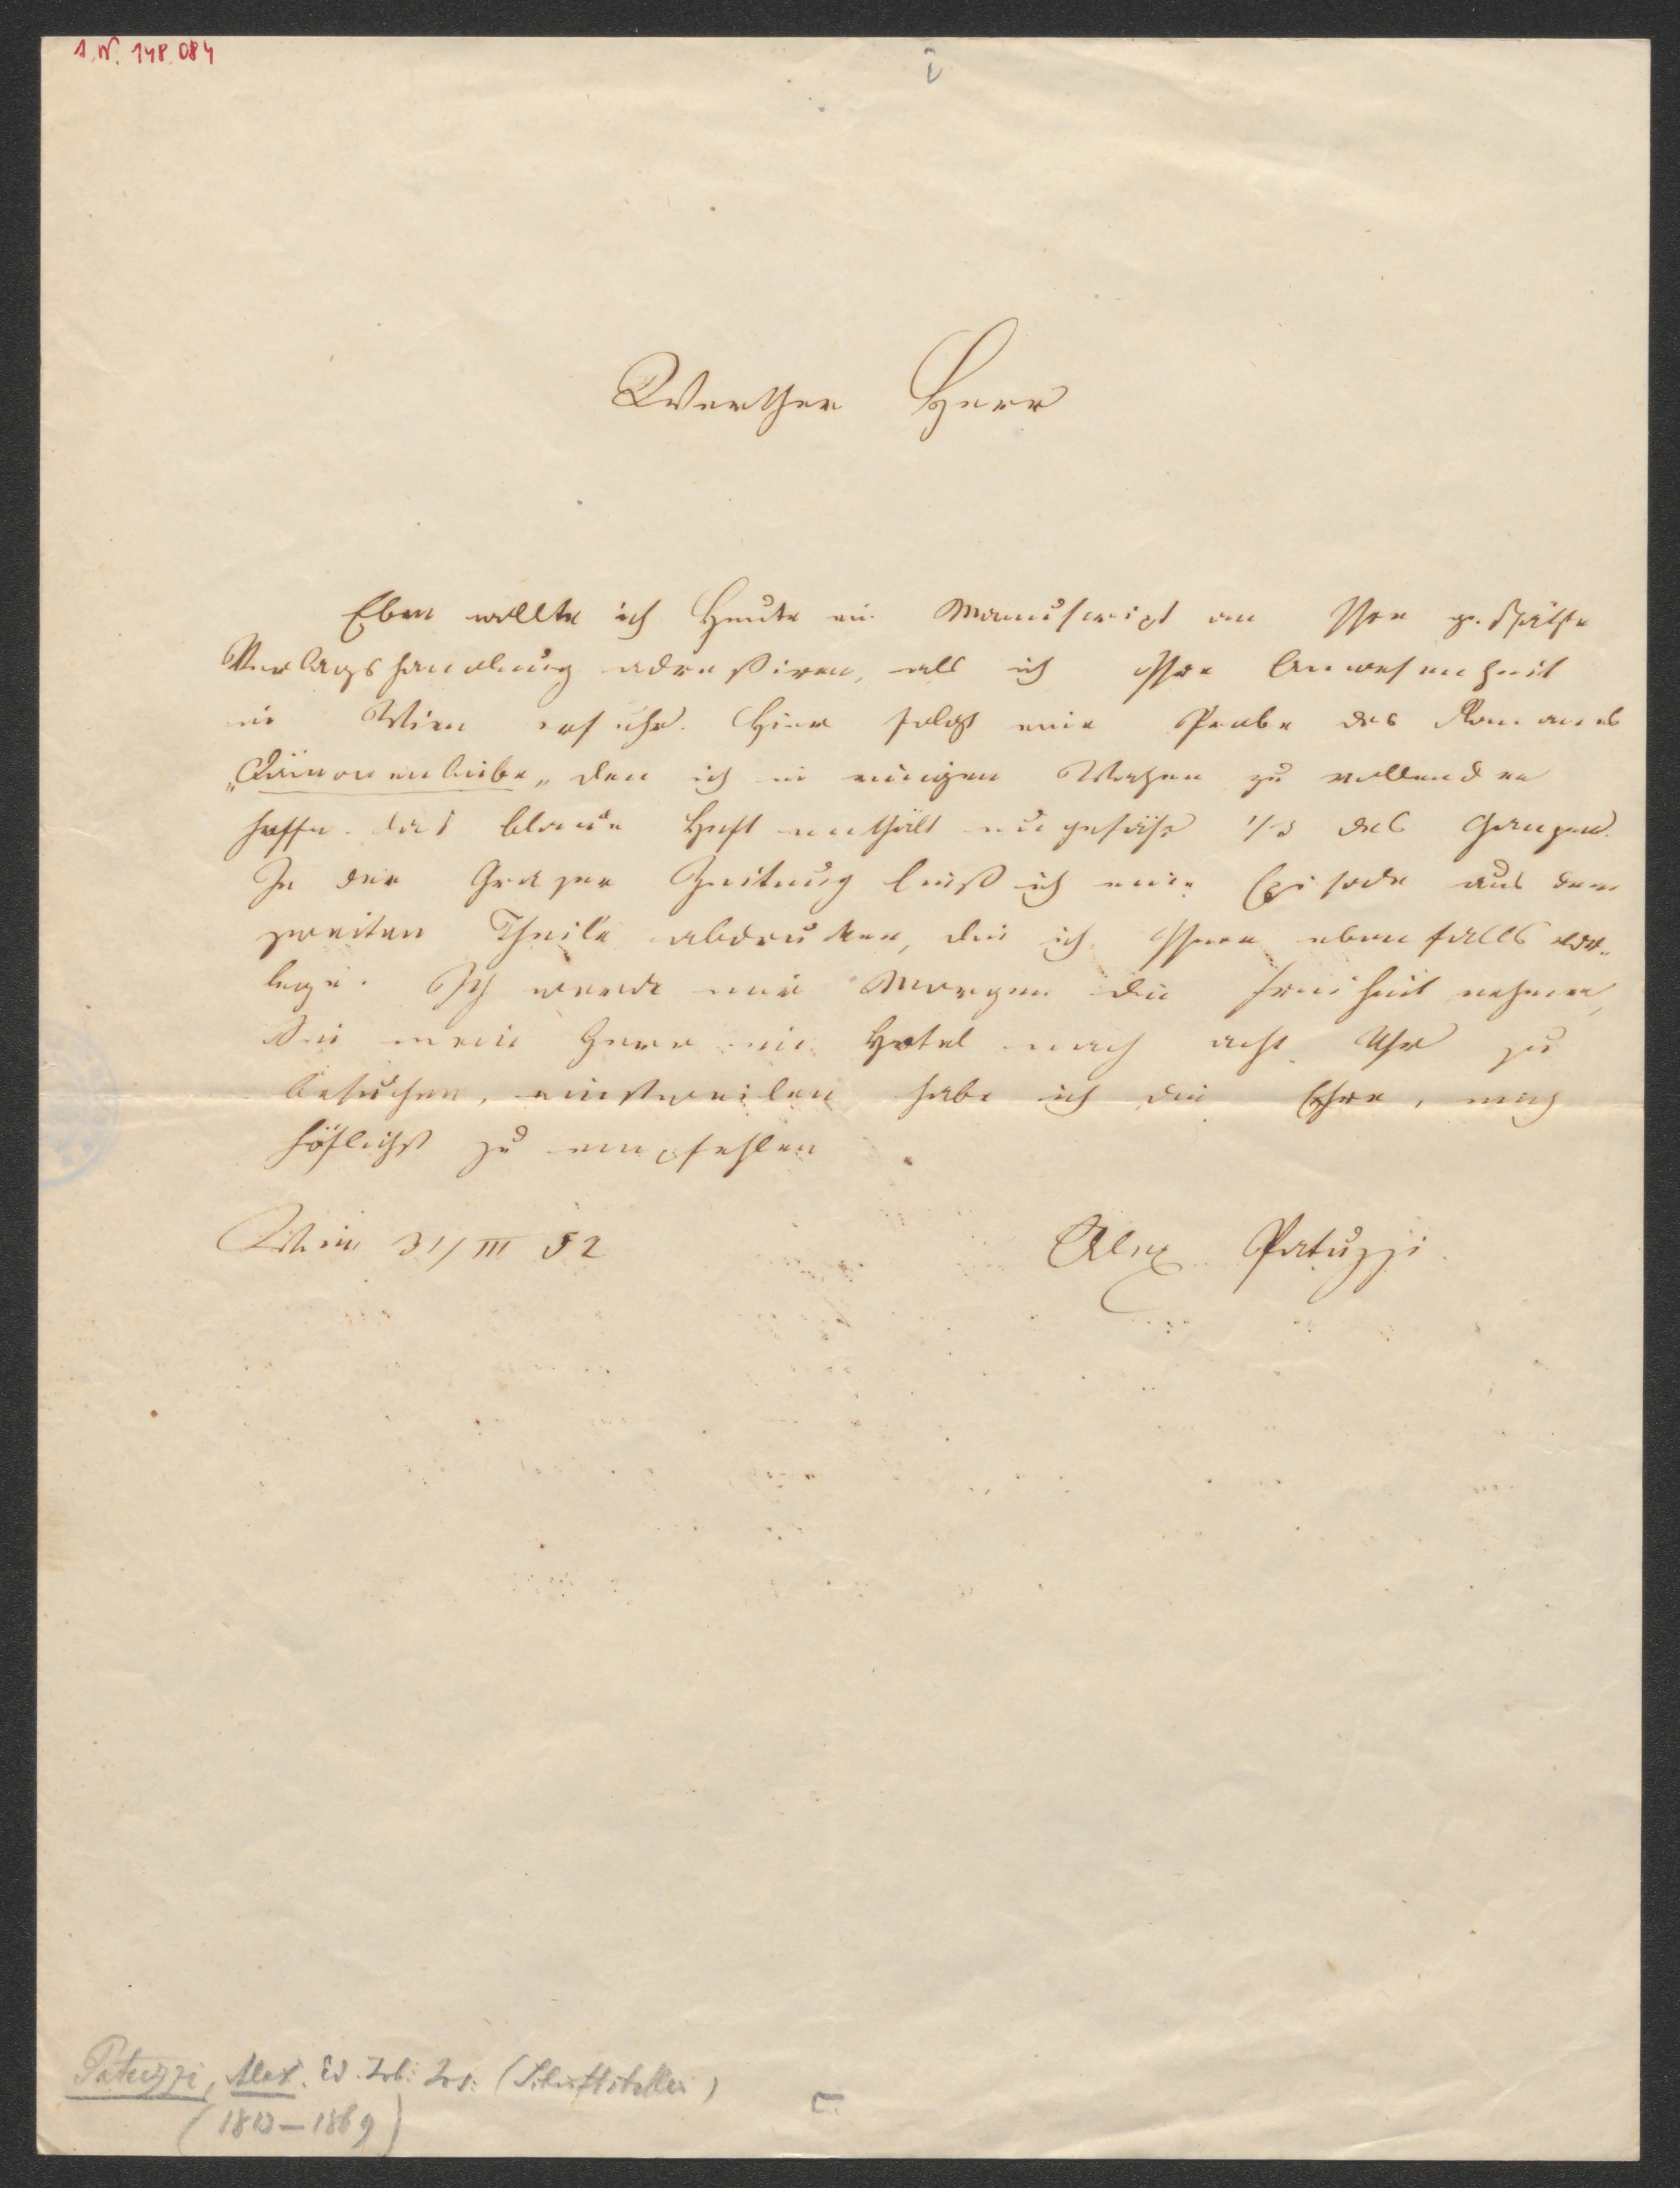 I.N. 148.084
Werther Herr
Eben wollte ich Heute ein Manuscript an Ihre geschätzte
Verlagshandlung adreßiren, als ich Ihre Anwesenheit
in Wien erfuhr. Hier folgt eine Probe des Romanes
„Dämonenliebe„ den ich in einigen Wochen zu vollenden
hoffe. das blaue Heft enthält ungefähr 1/3 des Ganzen.
In der Grazer Zeitung ließ ich eine Episode aus dem
zweiten Theile abdrucken, die ich Ihnen ebenfalls vor-
lege. Ich werde mir Morgen die Freiheit nehmen,
Sie mein Herr im Hotel nach acht Uhr zu
besuchen, einstweilen habe ich die Ehre, mich
höflichst zu empfehlen
Wien 31/III 52
Alex Patuzzi.
Patuzzi, Alex. Ed. (Schriftsteller)
(1813-1869)